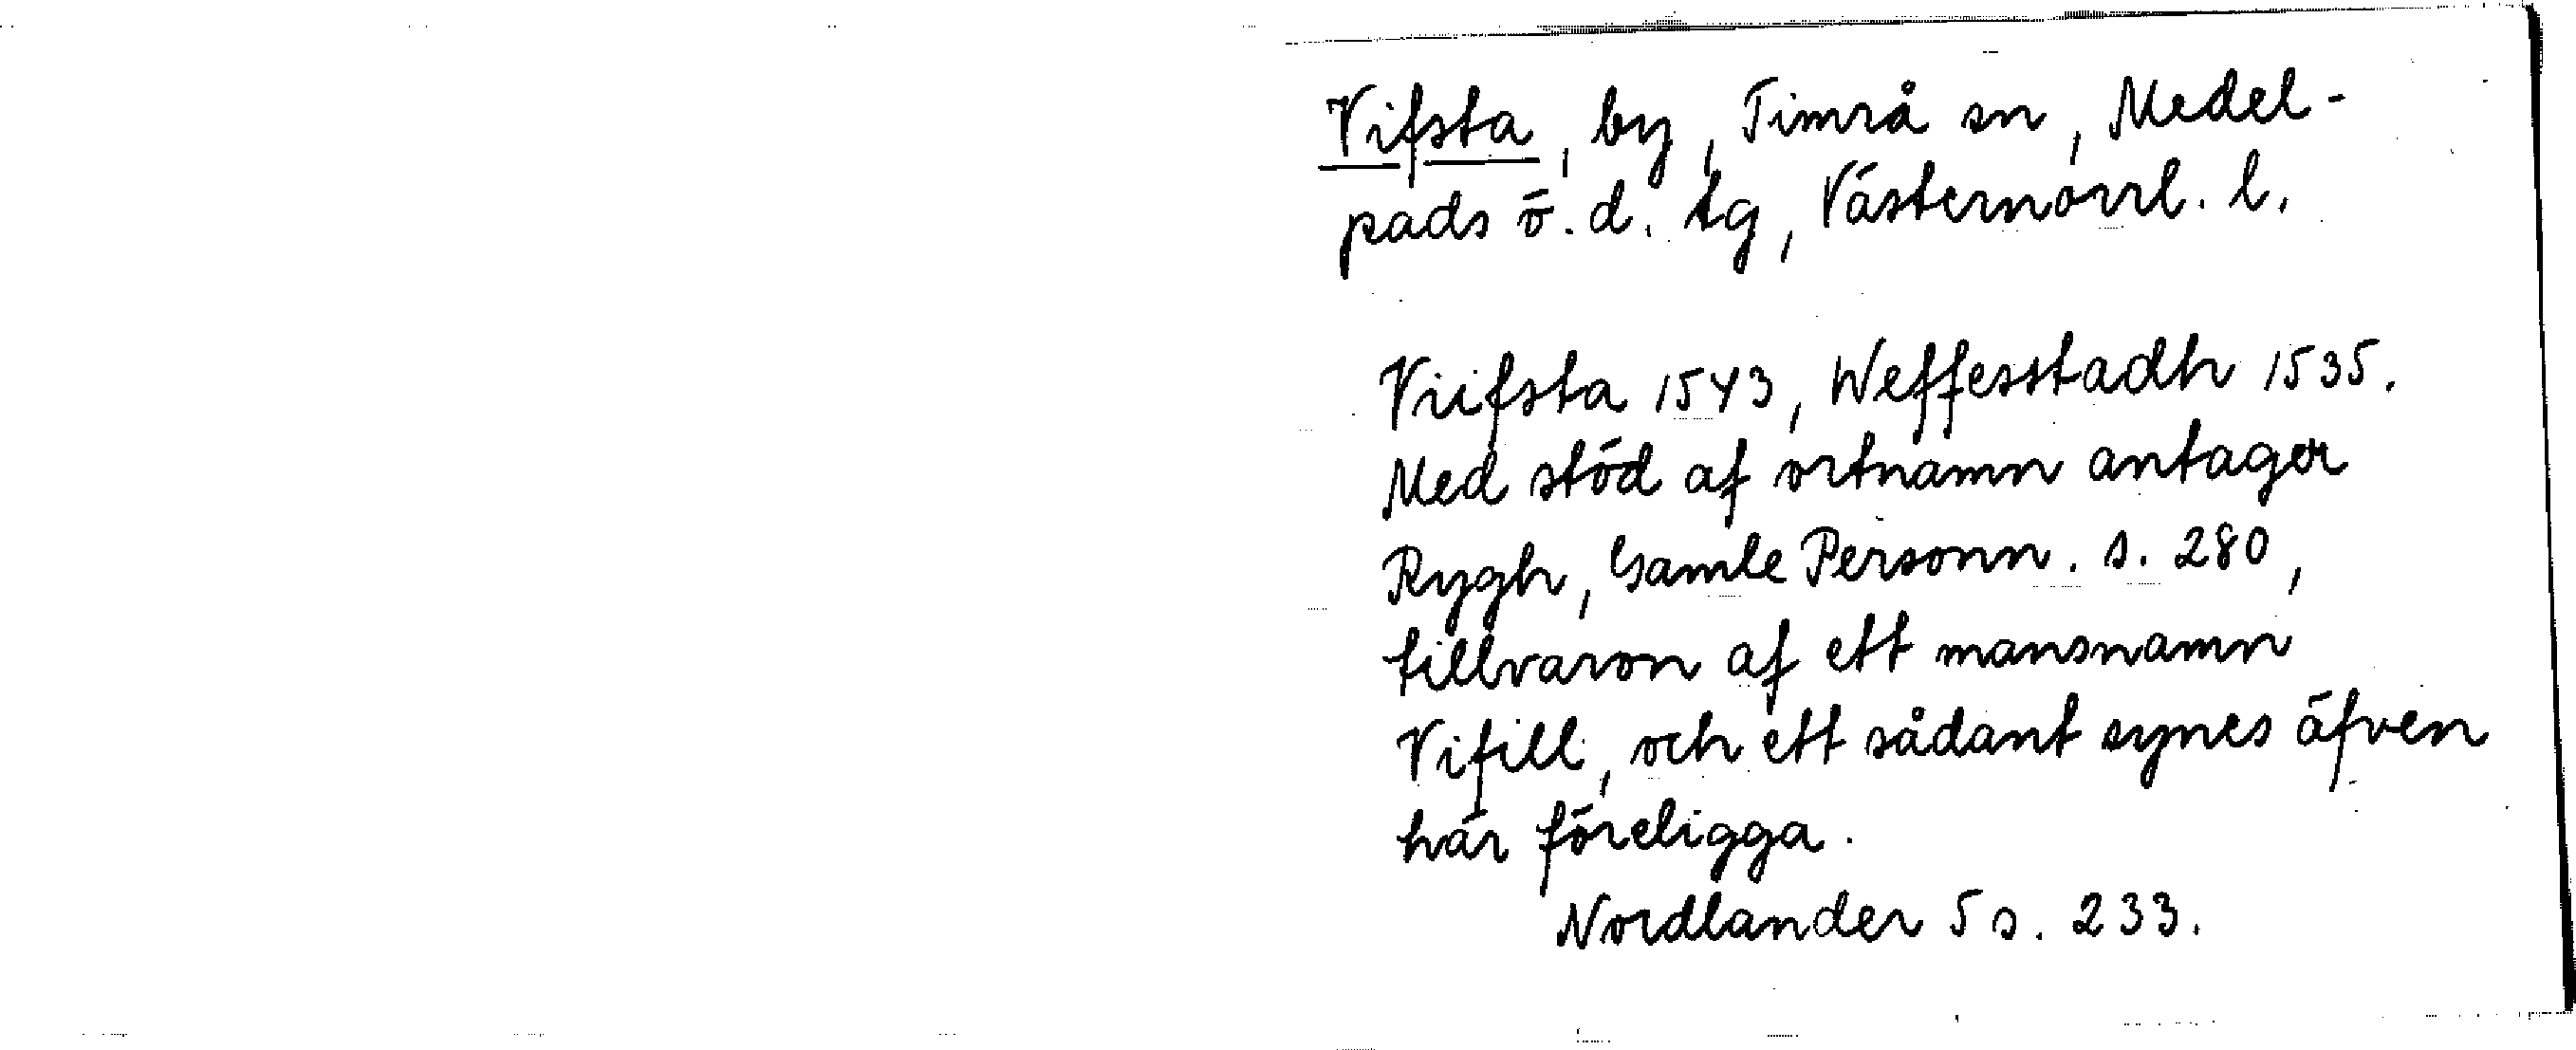 Vifsta, by, Timrå sn, Medel-
pads ö. d. tg, Västernorrl. l.
Viifsta 1543, Weffesstadh 1535.
Med stöd af ortnamn antager
Rygh, Gamle Personn. s. 280,
tillvaron af ett mansnamn
Vifill, och ett sådant synes äfven
här föreligga.
Nordlander 5 s. 233.